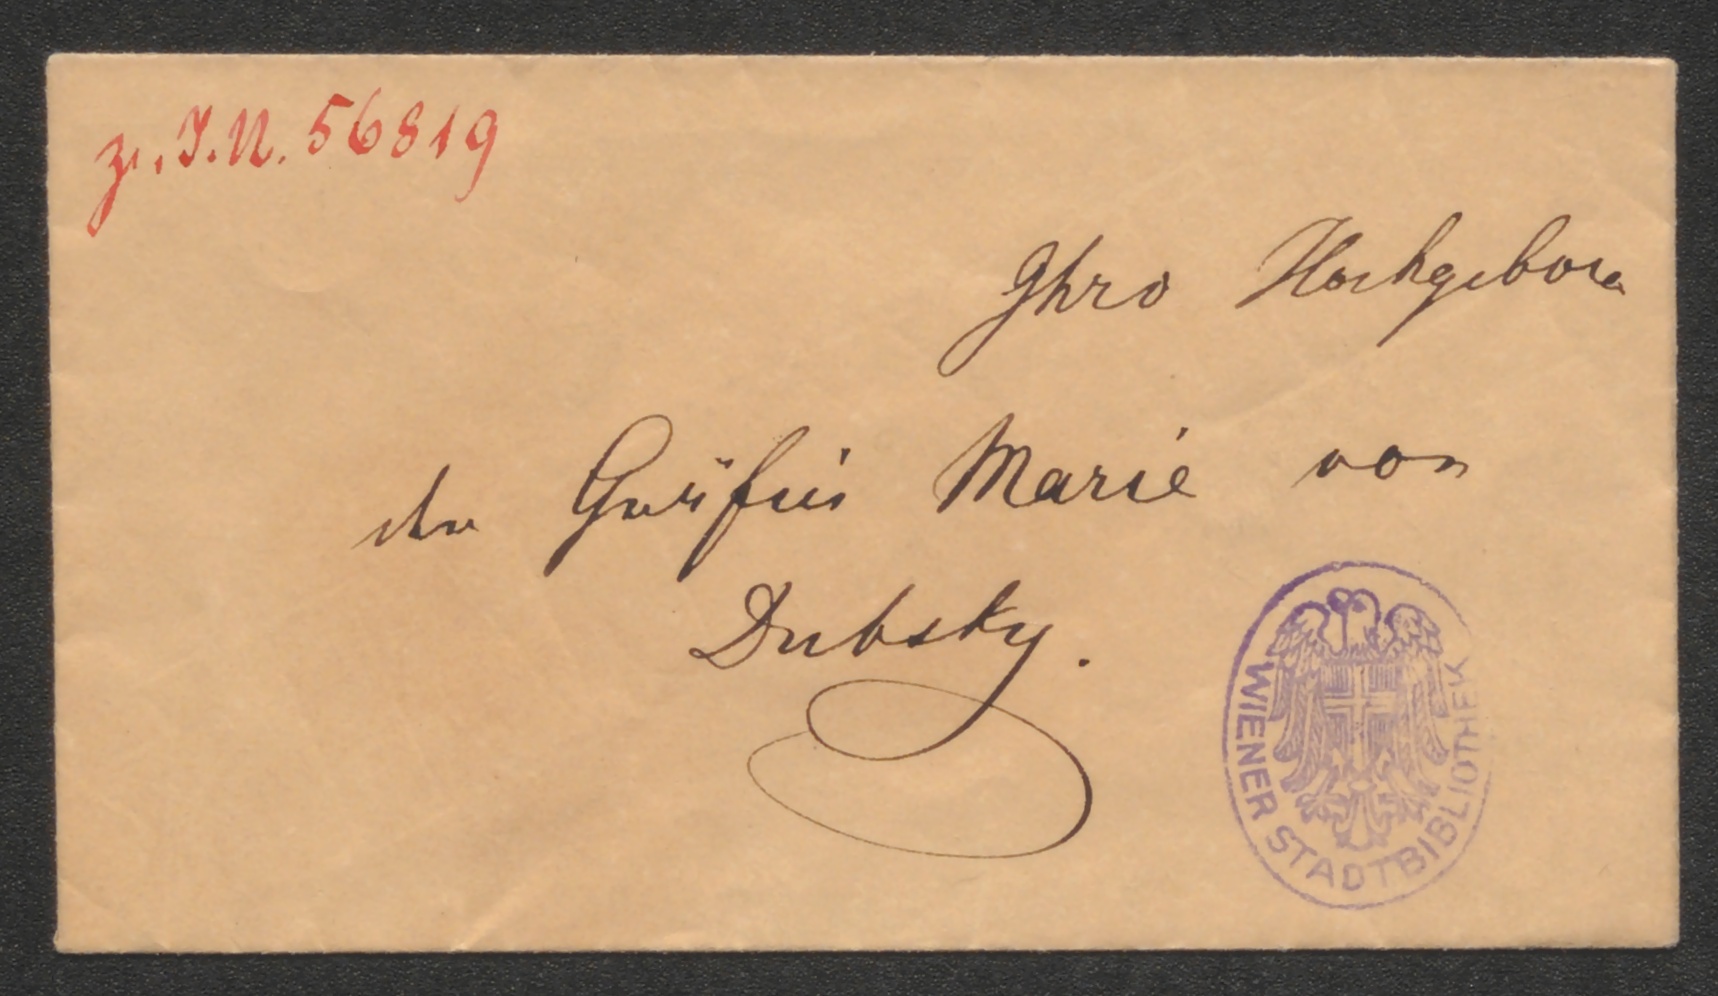 zu I.N. 56819
Ihro Hochgeboren
der Gräfin Marie von
Dubsky.
WIENER STADTBIBLIOTHEK